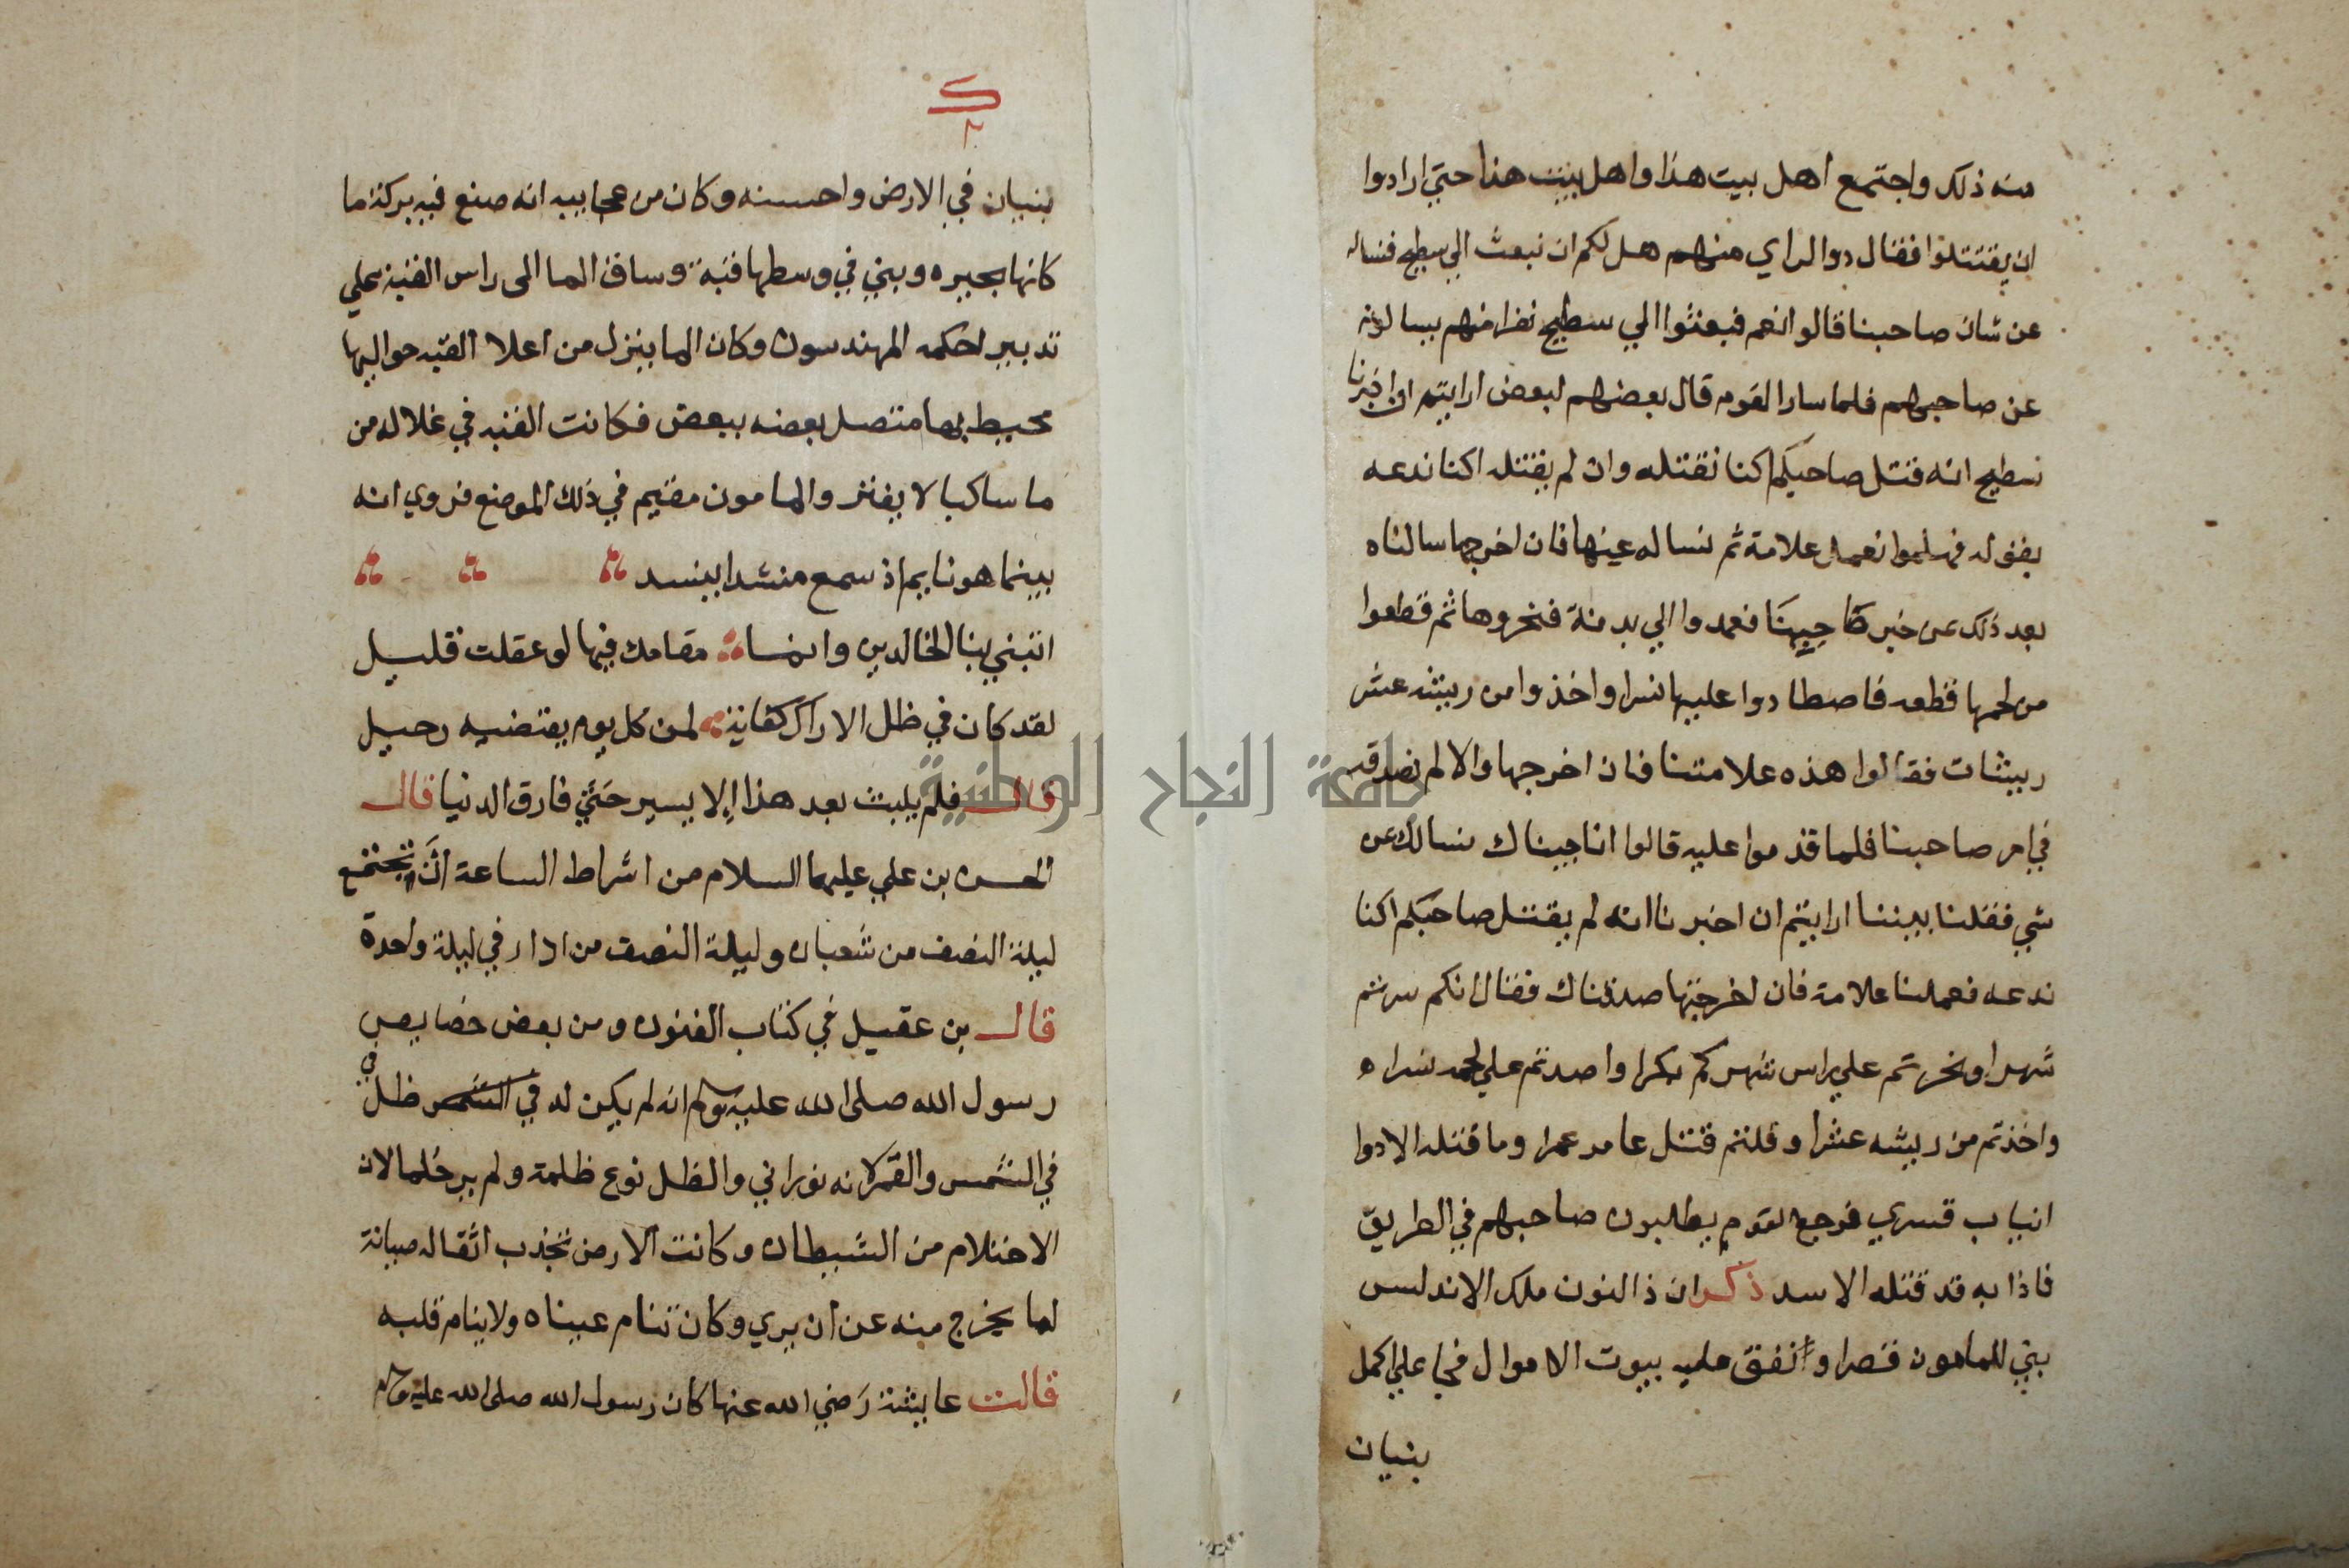 منه ذلك واجتمع اهل بيت هذا واهل بيت هذا حتي ارادوا
ان يقتتلوا فقال دوا الراي منهم هل لكم ان نبعث الي سطيح فنساله
عن شان صاحبنا قالوا نعم فبعثوا الي سطيح نفرا منهم يسالونه
عن صاحبهم فلما سار القوم قال بعضهم لبعض ارايتم ان اخبرنا
سطيح انه قتل صاحبكم اكنا نقتله وان لم يقتله اكنا ندعه
بقوله فهلموا نعمل علامة ثم نساله عنها فان اخرجها سالناه
بعد ذلك عن خبر صاحبنا فعمدوا الي بدنة فنحروها ثم قطعوا
من لحمها قطعه فاصطادوا عليها نسرا واخذوا من ريشه عشر
ريشات فقالوا هذه علامتنا فان اخرجها والا لم نصدقه
في امر صاحبنا فلما قدموا عليه قالوا انا جيناك نسالك عن
شي فقلنا بيننا ارايتم ان اخبرنا انه لم يقتل صاحبكم اكنا
ندعه فعملنا علامة فان اخرجتها صدقناك فقال انكم سرتم
شهرا ونحرتم علي راس شهركم بكرا واصدتم علي لحمه نسرا ه
واخذتم من ريشه عشرا وقلتم قتل عامر عمرا وما قتله الا دوا
انياب قسري فرجع القوم يطلبون صاحبهم في الطريق
فاذا به قد قتله الاسد ذكر ان ذا النون ملك الاندلس
بني للمامون قصرا وانفق عليه بيوت الاموال فجا علي اكمل
بنيان
بنيان في الارض واحسنه وكان من عجاييه انه صنع فيه بركة ما
كانها بحيره وبني في وسطها قبة وساق الما الى راس القبة علي
تدبير احكمه المهندسون وكان الما ينزل من اعلا القبه حواليها
محيط بها متصل بعضه ببعض فكانت القبه في غلاله من
ما ساكبا لا يفتر والمامون مقيم في ذلك الموضع فروي انه
بينما هو نايم اذ سمع منشدا ينسد
اتبني بنا الخالدين وانما مقامك فيها لو عقلت قليل
لقد كان في ظل الاراك كفاية لمن كل يوم يقتضيه رحيل
قال فلم يلبث بعد هذا الا يسير حتي فارق الدنيا قال
الحسن بن علي عليهما السلام من اشراط الساعة ان تجتمع
ليلة النصف من شعبان وليلة النصف من ادار في ليلة واحدة
قال بن عقيل في كتاب الفنون ومن بعض خصايص
رسول الله صلى الله عليه وسلم انه لم يكن له في الشمس ظل في
في الشمس والقمر لانه نوراني والظل نوع ظلمة ولم ير حلما لان
الاحتلام من الشيطان وكانت الارض تجذب اثقاله صيانة
لما يخرج منه عن ان يري وكان تنام عيناه ولا ينام قلبه
قالت عايشة رضي الله عنها كان رسول الله صلى الله عليه وسلم
جامعة النجاح الوطنية